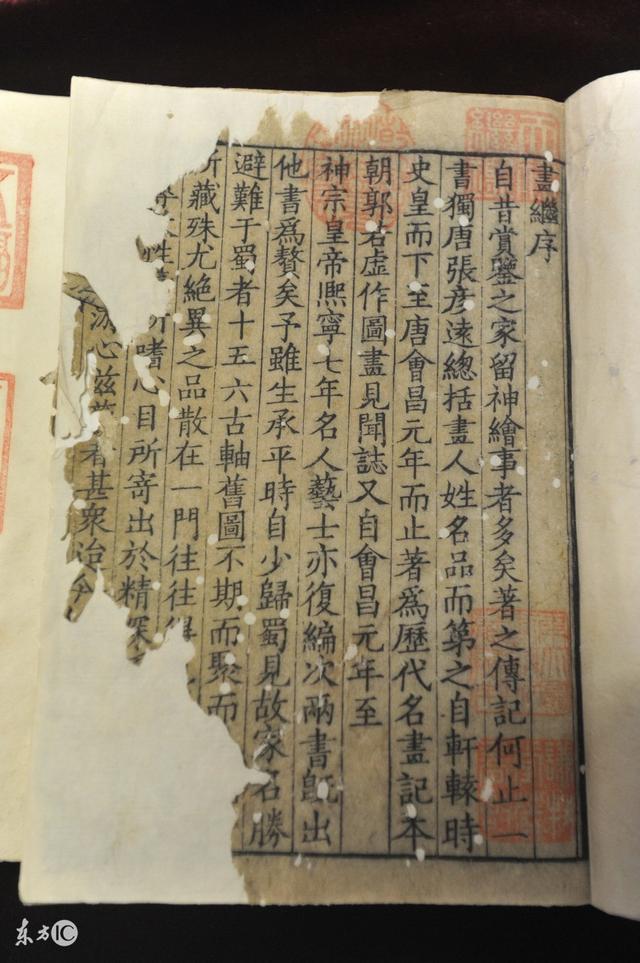 畫繼序
自昔賞鑒之家留神繪事者多矣著之傳記何止一
書獨唐張彥遠總括畫人姓名品而第之自軒轅時
史皇而下至唐會昌元年而止著為歷代名畫記本
朝郭若虛作圖畫見聞誌又自會昌元年至
神宗皇帝熙寧七年名人藝士亦復編次兩書既出
他書為贅矣予雖生承平時自少歸蜀見故家名勝
避難于蜀者十五六古軸舊圖不期而聚而
所藏殊尤絕異之品散在一門往往得
性所嗜心目所寄出於精深
游心茲藝者甚衆迨今
东方IC